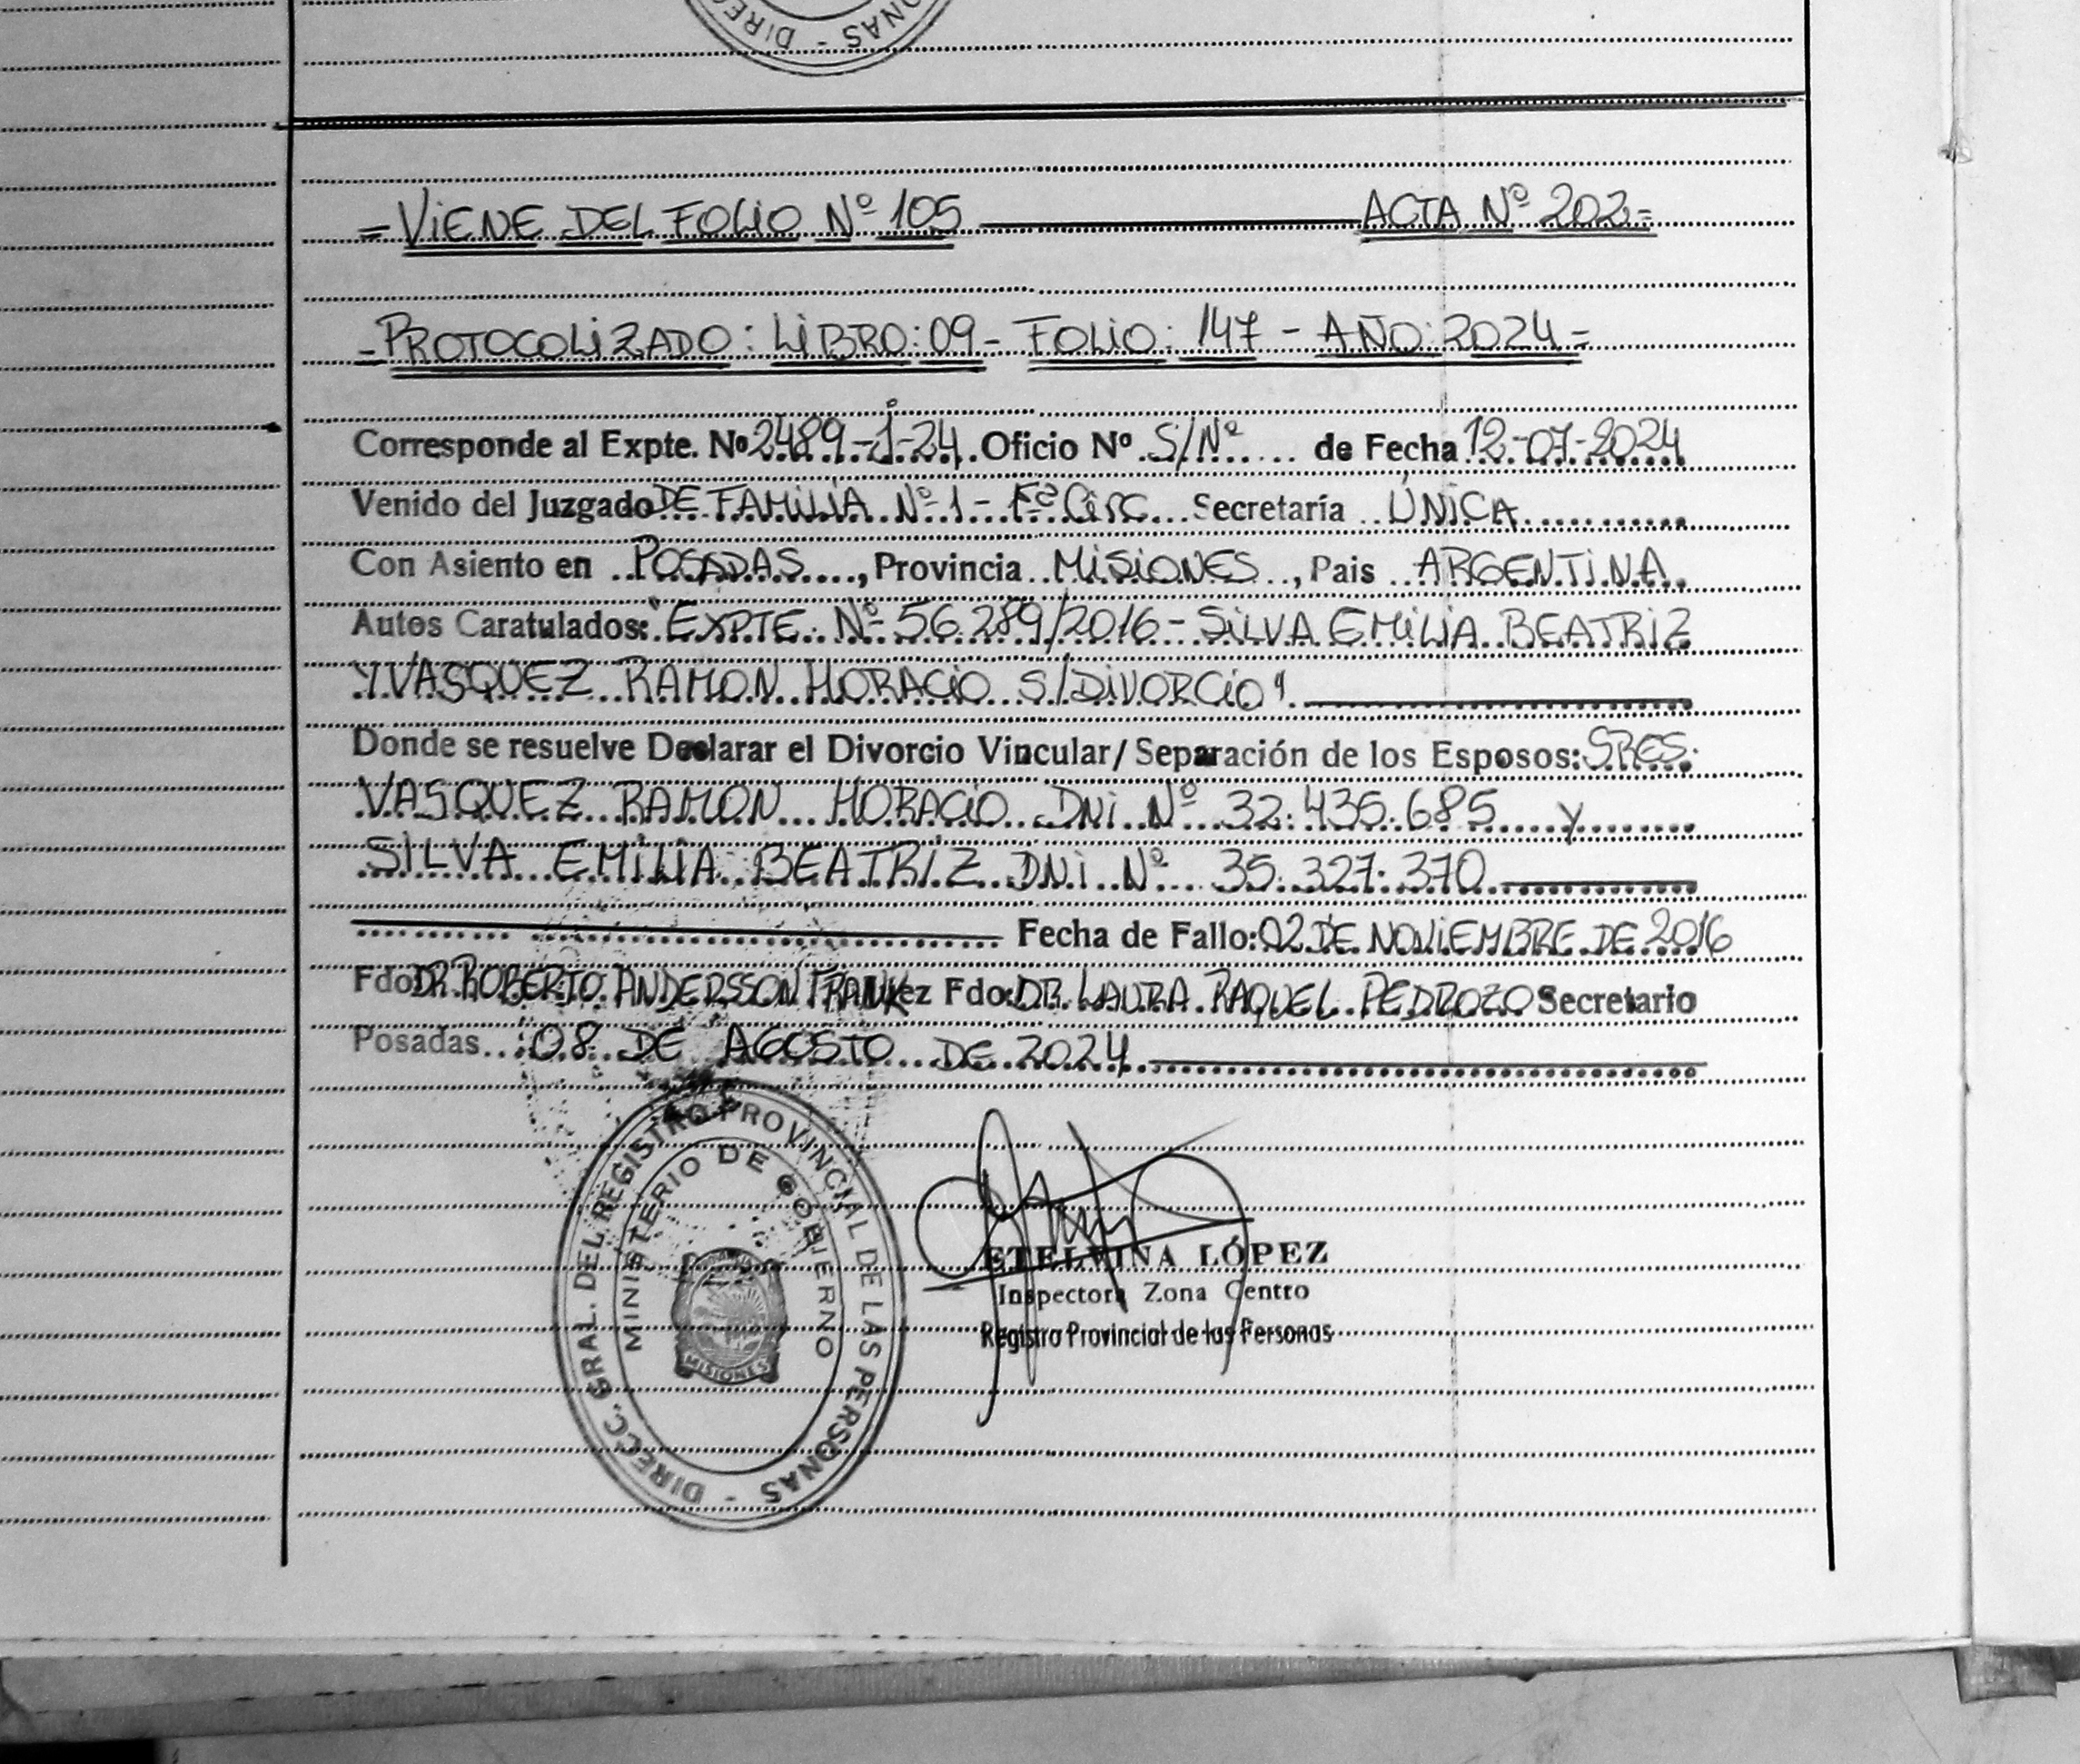 NAS - DIREC
=VIENE DEL FOLIO Nº 105 ACTA Nº 202=
=PROTOCOLIZADO: LIBRO: 09- FOLIO: 147 - AÑO: 2024=
Corresponde al Expte. Nº 2489-J-24. Oficio Nº S/Nº de Fecha 12-07-2024
Venido del Juzgado DE FAMILIA Nº 1 - Circ. Secretaría ÚNICA
Con Asiento en POSADAS, Provincia MISIONES, Pais ARGENTINA
Autos Caratulados: "EXPTE. Nº 56.289/2016 - SILVA EMILIA BEATRIZ
Y VASQUEZ RAMON HORACIO S/DIVORCIO".
Donde se resuelve Declarar el Divorcio Vincular/Separación de los Esposos: SRES.
VASQUEZ RAMON HORACIO DNI Nº 32.435.685 y
SILVA EMILIA BEATRIZ DNI Nº 35.327.370
Fecha de Fallo: 02 DE NOVIEMBRE DE 2016
Fdo DR. ROBERTO ANDERSSON FRANK ez Fdo: DR. LAURA RAQUEL PEDROZO Secretario
Posadas 08 DE AGOSTO DE 2024
DIRECC. GRAL. DEL REGISTRO PROVINCIAL DE LAS PERSONAS -
MINISTERIO DE GOBIERNO
MISIONES
ETELVINA LÓPEZ
Inspectora Zona Centro
Registro Provincial de las Personas